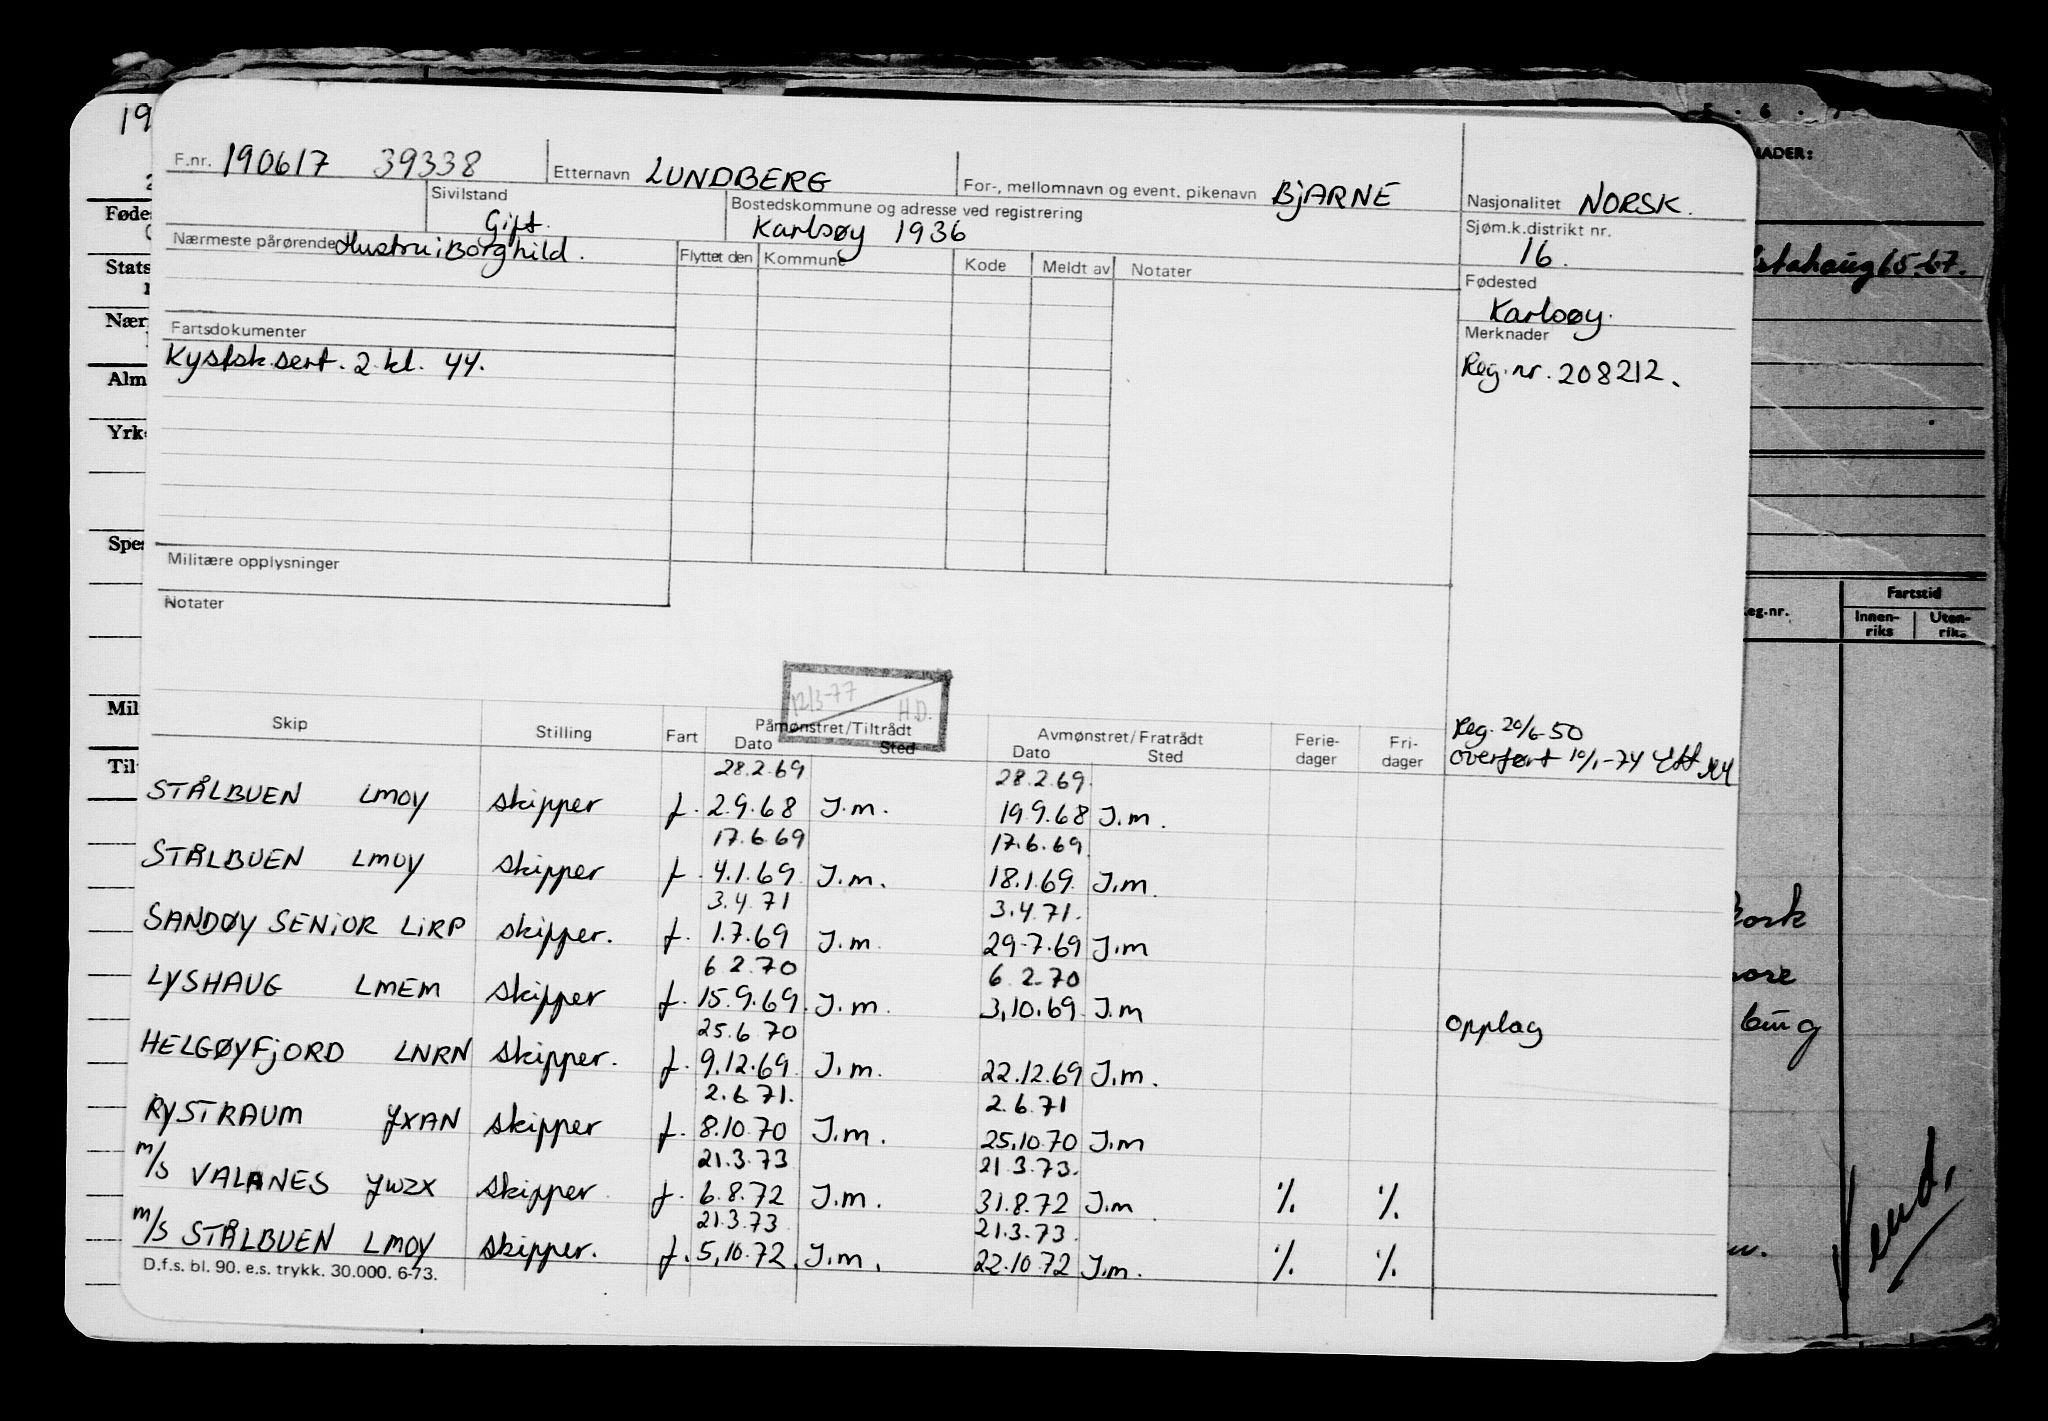 F.nr. 190617 39338 Etternavn LUNDBERG For-, mellomnavn og event. pikenavn BJARNE Nasjonalitet NORSK.
Sivilstand Gift. Bostedskommune og adresse ved registrering Karlsøy 1936 Sjøm.k.distrikt nr. 16.
Nærmeste pårørende Hustru: Borghild. Flyttet den Kommune Kode Meldt av Notater
Fødested Karlsøy.
Fartsdokumenter Merknader
Kystsk.sert. 2 kl. 44. Reg.nr. 208212.
Militære opplysninger
Notater
12/3-77 H.D.
Skip Stilling Fart Påmønstret/Tiltrådt Dato Sted Avmønstret/Fratrådt Dato Sted Ferie-dager Fri-dager
Reg. 20/6-50
overført 10/1-74
28.2.69 28.2.69.
STÅLBUEN LMOY skipper f. 2.9.68 I.m. 19.9.68 I.m.
17.6.69 17.6.69.
STÅLBUEN LMOY skipper f. 4.1.69 I.m. 18.1.69. I.m.
3.4.71 3.4.71.
SANDØY SENIOR LIRP skipper. f. 1.7.69 I.m. 29.7.69 I.m
6 2.70 6.2.70
LYSHAUG LMEM skipper f. 15.9.69. I.m. 3.10.69. I.m opplag
25.6.70
HELGØYFJORD LNRN skipper. f. 9.12.69. I.m. 22.12.69 I.m.
2.6.71. 2.6.71
RYSTRAUM JXAN skipper f. 8.10.70 I.m. 25.10.70 I.m
21.3.73 21.3.73.
m/s VALANES JWZX skipper. f. 6.8.72 I.m. 31.8.72 I.m. ·/. ·/.
21.3.73. 21.3.73.
m/s STÅLBUEN LMOY skipper. f. 5.10.72. I.m. 22.10.72 I.m. ·/. ·/.
D.f.s. bl. 90. e.s. trykk. 30.000. 6-73.
19
Føde
Stats
Nær
Alm
Yrk
Spe
Mil
Til
5 · 6 ·
NADER:
65-67.
eg.nr. Fartstid
Innen-riks Uten-riks
Vend.